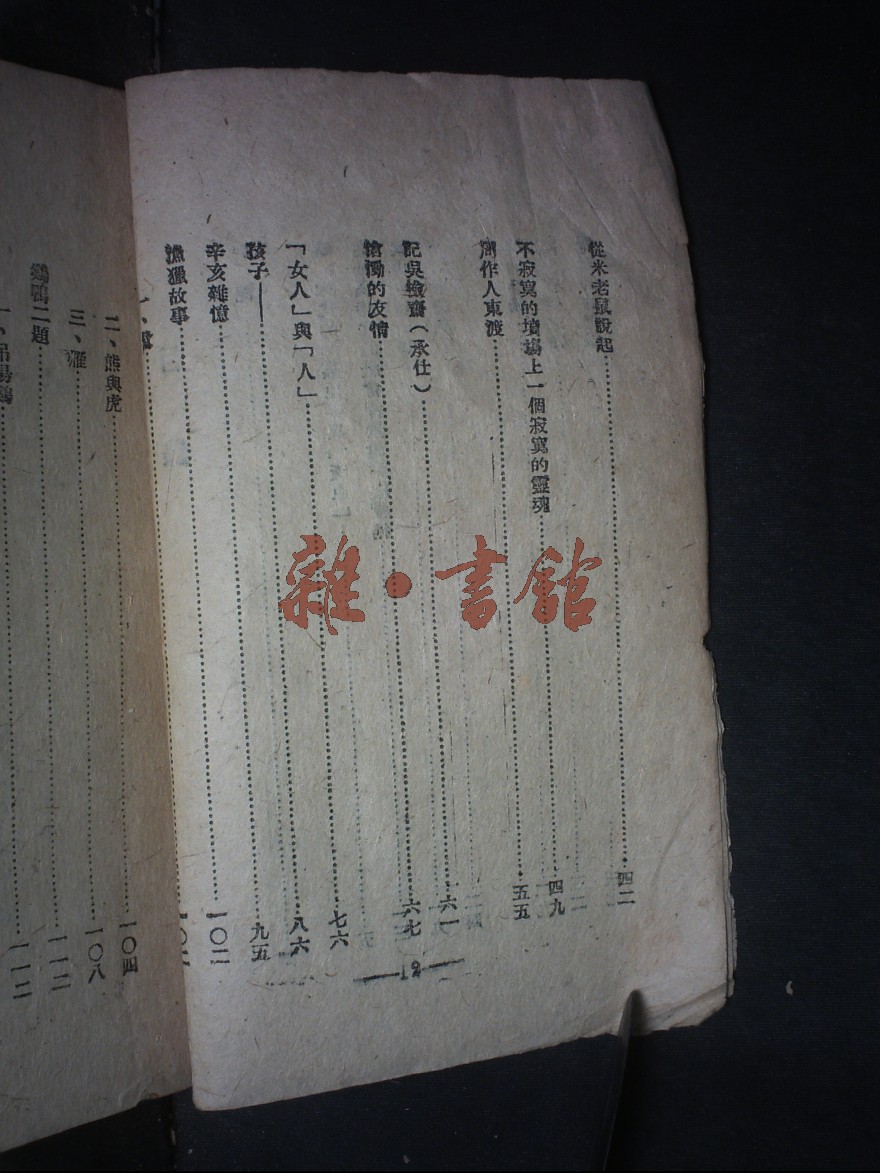 從米老鼠說起……四二
不寂寞的墳場上一個寂寞的靈魂……四九
周作人東渡……五五
記吳檢齋(承仕)……六一
愴慟的友情……六七
「女人」與「人」……七六
孩子——……八六
辛亥雜憶……九五
漁獵故事……一〇二
一、……一〇二
二、熊與虎……一〇四
三、雁……一〇八
鷄鴨二題……一一二
一、……一一二
雜·書館